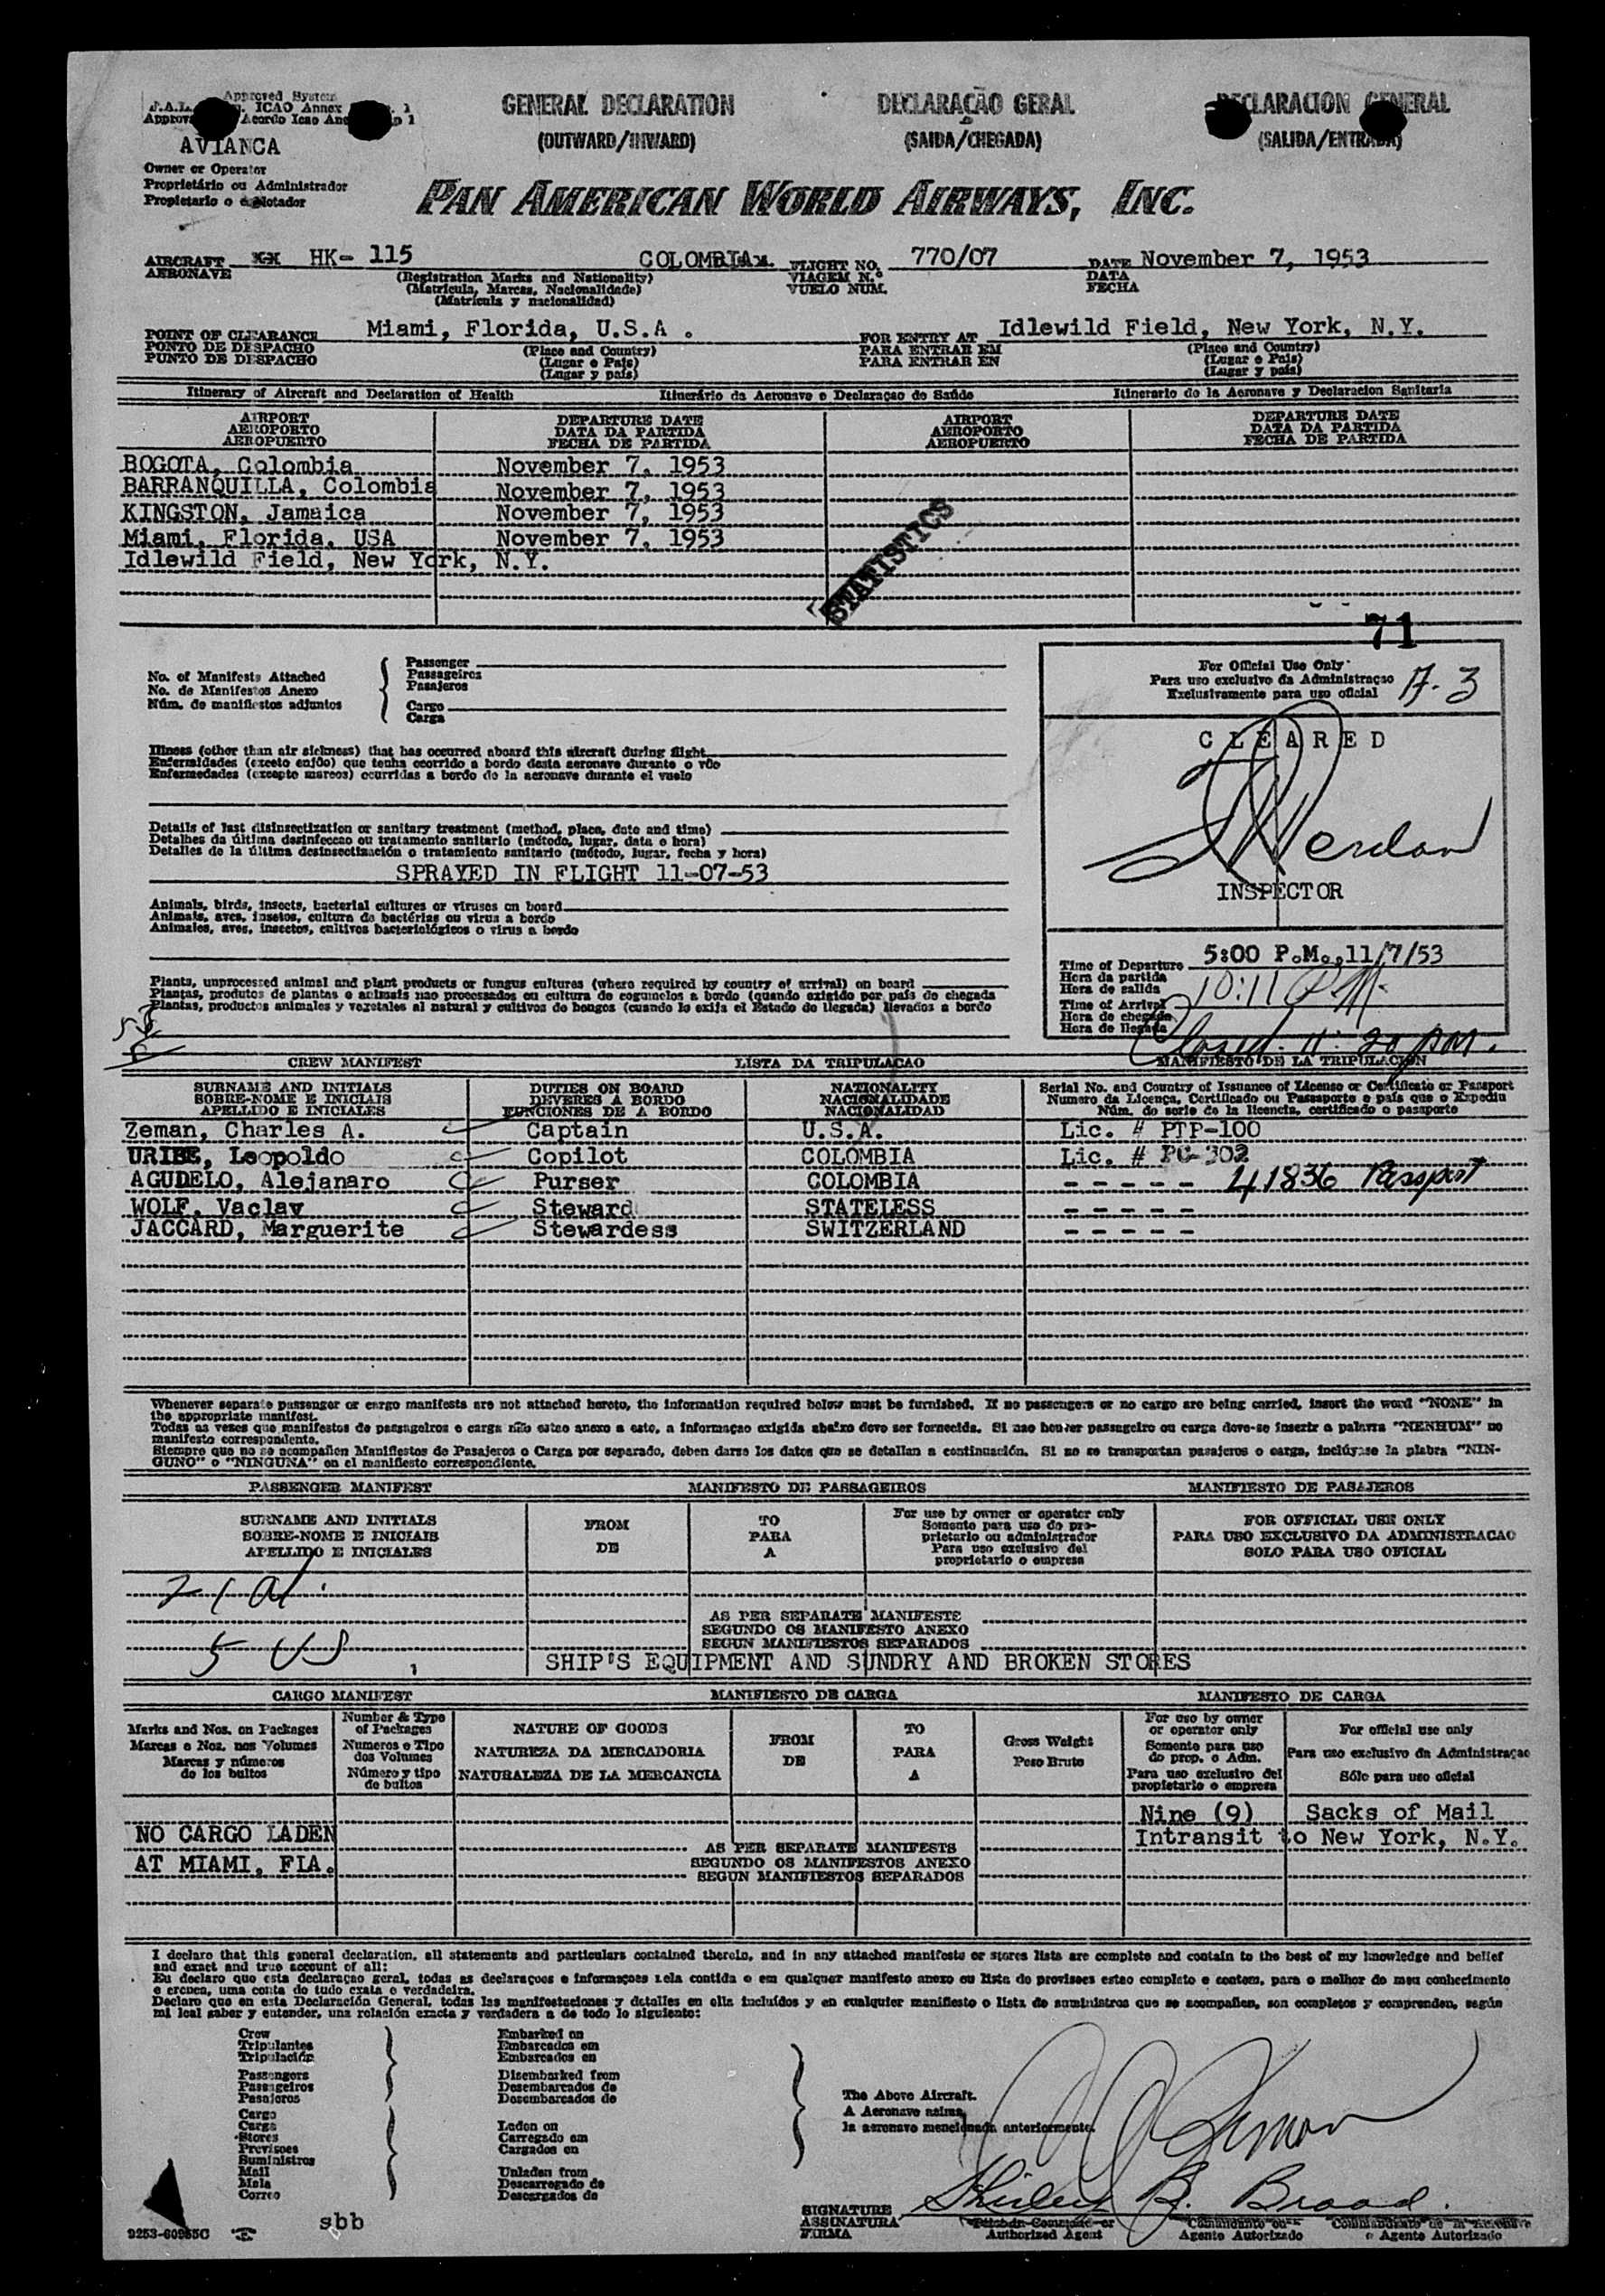 Approved System
ICAO Annex
Acordo Icao
GENERAL DECLARATION
(OUTWARD/INWARD)
DECLARAÇÃO GERAL
(SAIDA/CHEGADA)
(SALIDA/ENTRADA)
AVIANCA
Owner or Operator
Proprietário ou Administrador
Propietario o
PAN AMERICAN WORLD AIRWAYS, INC.
AIRCRAFT HK- 115 COLOMBIA FLIGHT NO. 770/07 DATE November 7, 1953
AERONAVE (Registration Marks and Nationality) VIAGEM N.º DATA
(Matricula, Marcas, Nacionalidade) VUELO NUM. FECHA
(Matrícula y nacionalidad)
POINT OF CLEARANCE Miami, Florida, U.S.A . FOR ENTRY AT Idlewild Field, New York, N.Y.
PONTO DE DESPACHO (Place and Country) PARA ENTRAR EM (Place and Country)
PUNTO DE DESPACHO (Lugar e Pais) PARA ENTRAR EN (Lugar e Pais)
(Lugar y país) (Lugar y país)
Itinerary of Aircraft and Declaration of Health Itinerário da Aeronave e Declaraçao de Saúde Itinerario de la Aeronave y Declaracion Sanitaria
AIRPORT DEPARTURE DATE AIRPORT DEPARTURE DATE
AEROPORTO DATA DA PARTIDA AEROPORTO DATA DA PARTIDA
AEROPUERTO FECHA DE PARTIDA AEROPUERTO FECHA DE PARTIDA
BOGOTA, Colombia November 7, 1953
BARRANQUILLA, Colombia November 7, 1953
KINGSTON, Jamaica November 7, 1953
Miami, Florida, USA November 7, 1953
Idlewild Field, New York, N.Y.
STATISTICS
71
No. of Manifests Attached
No. de Manifestos Anexo
Núm. de manifiestos adjuntos
Passenger
Passageiros
Pasajeros
Cargo
Carga
For Official Use Only
Para uso exclusivo da Administraçao
Exclusivamente para uso oficial
A-3
CLEARED
INSPECTOR
Illness (other than air sickness) that has occurred aboard this aircraft during flight
Enfermidades (exceto enjôo) que tenha ocorrido a bordo desta aeronave durante o vôo
Enfermedades (excepto mareos) ocurridas a bordo de la aeronave durante el vuelo
Details of last disinsectization or sanitary treatment (method, place, date and time)
Detalhes da última desinfeccao ou tratamento sanitario (método, lugar, data e hora)
Detalles de la última desinsectización o tratamiento sanitario (método, lugar, fecha y hora)
SPRAYED IN FLIGHT 11-07-53
Animals, birds, insects, bacterial cultures or viruses on board
Animais, aves, insetos, cultura de bactérias ou virus a bordo
Animales, aves, insectos, cultivos bacteriológicos o virus a bordo
Plants, unprocessed animal and plant products or fungus cultures (where required by country of arrival) on board
Plantas, produtos de plantas e animais nao processados ou cultura de cogumelos a bordo (quando exigido por país de chegada
Plantas, productos animales y vegetales al natural y cultivos de hongos (cuando lo exija el Estado de llegada) llevados a bordo
Time of Departure 5:00 P.M., 11/7/53
Hora da partida
Hora de salida 10:11 P.M.
Time of Arrival
Hora de chegada
Hora de llegada
Closed. 11:20 pm.
CREW MANIFEST LISTA DA TRIPULACAO MANIFIESTO DE LA TRIPULACION
SURNAME AND INITIALS DUTIES ON BOARD NATIONALITY Serial No. and Country of Issuance of License or Certificate or Passport
SOBRE-NOME E INICIAIS DEVERES A BORDO NACIONALIDADE Numero da Licença, Certificado ou Passaporte e país que o Expediu
APELLIDO E INICIALES FUNCIONES DE A BORDO NACIONALIDAD Núm. de serie de la licencia, certificado o pasaporte
Zeman, Charles A. Captain U.S.A. Lic. # PTP-100
URIBE, Leopoldo Copilot COLOMBIA Lic. # PC-302
AGUDELO, Alejanaro Purser COLOMBIA - - - - - 41836 Passport
WOLF, Vaclav Steward STATELESS - - - - -
JACCARD, Marguerite Stewardess SWITZERLAND - - - - -
Whenever separate passenger or cargo manifests are not attached hereto, the information required below must be furnished. If no passengers or no cargo are being carried, insert the word "NONE" in
the appropriate manifest.
Todas as vezes que manifestos de passageiros e carga não estao anexo a este, a informaçao exigida abaixo deve ser fornecida. Si nao houver passageiro ou carga deve-se inserir a palavra "NENHUM" no
manifesto correspondente.
Siempre que no se acompañen Manifiestos de Pasajeros o Carga por separado, deben darse los datos que se detallan a continuación. Si no se transportan pasajeros o carga, inclúyase la plabra "NIN-
GUNO" o "NINGUNA" en el manifiesto correspondiente.
PASSENGER MANIFEST MANIFESTO DE PASSAGEIROS MANIFIESTO DE PASAJEROS
SURNAME AND INITIALS FROM TO For use by owner or operator only FOR OFFICIAL USE ONLY
SOBRE-NOME E INICIAIS PARA Somente para uso do pro- PARA USO EXCLUSIVO DA ADMINISTRACAO
APELLIDO E INICIALES DE A prietario ou administrador SOLO PARA USO OFICIAL
Para uso exclusivo del
proprietario o empresa
21 al.
5 US
AS PER SEPARATE MANIFESTS
SEGUNDO OS MANIFESTO ANEXO
SEGUN MANIFIESTOS SEPARADOS
SHIP'S EQUIPMENT AND SUNDRY AND BROKEN STORES
CARGO MANIFEST MANIFIESTO DE CARGA MANIFESTO DE CARGA
Marks and Nos. on Packages
Marcas e Noz. nos Volumes
Marcas y números
de los bultos
Number & Type
of Packages
Numeros e Tipo
dos Volumes
Número y tipo
de bultos
NATURE OF GOODS
NATUREZA DA MERCADORIA
NATURALEZA DE LA MERCANCIA
FROM
DE
TO
PARA
A
Gross Weight
Peso Bruto
For use by owner
or operator only
Somente para uso
do prop. o Adm.
Para uso exclusivo del
propietario o empresa
For official use only
Para uso exclusivo da Administraçao
Sólo para uso oficial
Nine (9) Sacks of Mail
Intransit to New York, N.Y.
NO CARGO LADEN
AT MIAMI, FLA.
AS PER SEPARATE MANIFESTS
SEGUNDO OS MANIFESTOS ANEXO
SEGUN MANIFIESTOS SEPARADOS
I declare that this general declaration, all statements and particulars contained therein, and in any attached manifests or stores lists are complete and contain to the best of my knowledge and belief
and exact and true account of all:
Eu declaro que esta declaraçao geral, todas as declaraçoes e informaçoes nela contida e em qualquer manifesto anexo ou lista de provisoes estao completo e contem, para o melhor do meu conhecimento
e crenca, uma conta de tudo exata e verdadeira.
Declaro que en esta Declaración General, todas las manifestaciones y detalles en ella incluídos y en cualquier manifiesto o lista de suministros que se acompañen, son completos y comprenden, según
mi leal saber y entender, una relación exacta y verdadera a de todo lo siguiente:
Crew
Tripulantes
Tripulación
Passengers
Passageiros
Pasajeros
Cargo
Carga
Stores
Previsoes
Suministros
Mail
Mala
Correo
Embarked on
Embarcados em
Embarcados en
Disembarked from
Desembarcados de
Desembarcados de
Laden on
Carregado em
Cargados en
Unladen from
Descarregado de
Descargados de
The Above Aircraft.
A Aeronave acima
la aeronave mencionada anteriormente.
Shirley B. Broad.
SIGNATURE
ASSINATURA
FIRMA
Authorized Agent Agente Autorizado o Agente Autorizado
sbb